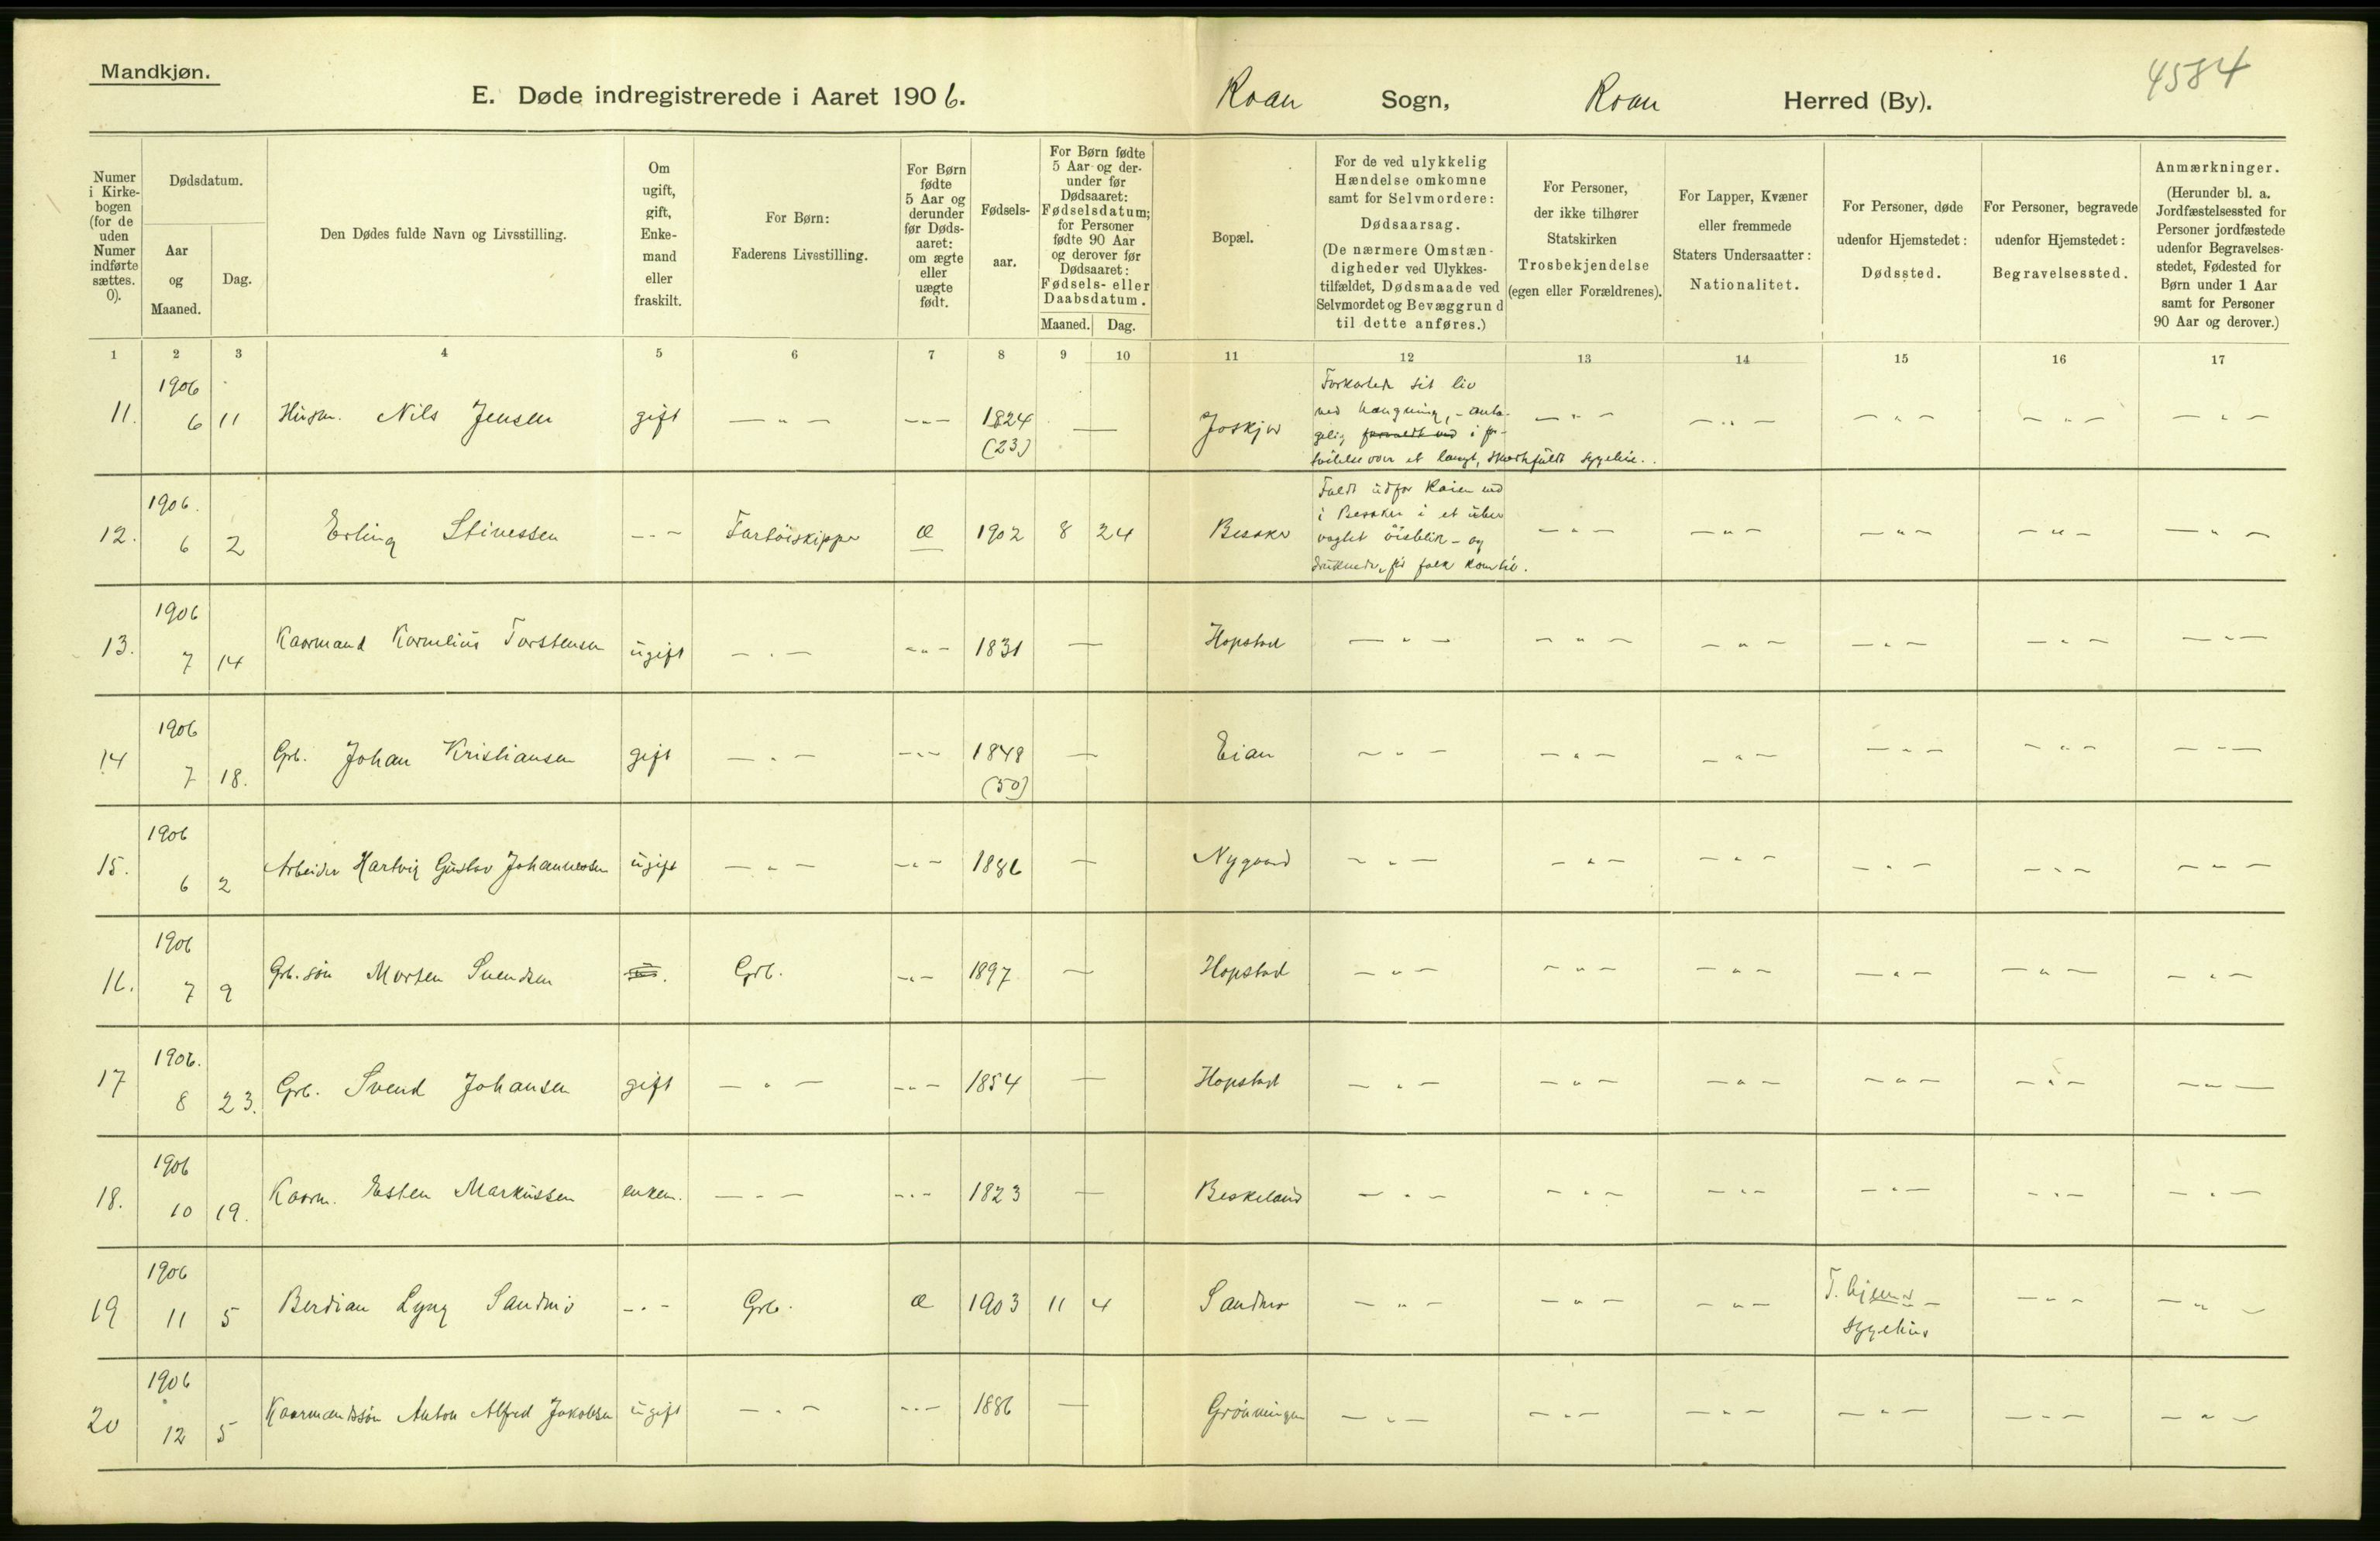 Mandkjøn.
4584
E. Døde indregistrerede i Aaret 1906. Roan Sogn, Roan Herred (By).
Numer i Kirkebogen (for de uden Numer indførte sættes. 0).
Dødsdatum.
Aar og Maaned.
Dag.
Den Dødes fulde Navn og Livsstilling.
Om ugift, gift, Enkemand eller fraskilt.
For Børn:
Faderens Livsstilling.
For Børn fødte 5 Aar og derunder før Dødsaaret: om ægte eller uægte født.
Fødselsaar.
For Børn fødte 5 Aar og derunder før Dødsaaret: Fødselsdatum; for Personer fødte 90 Aar og derover før Dødsaaret: Fødsels- eller Daabsdatum.
Maaned. Dag.
Bopæl.
For de ved ulykkelig Hændelse omkomne samt for Selvmordere:
Dødsaarsag.
(De nærmere Omstændigheder ved Ulykkestilfældet, Dødsmaade ved Selvmordet og Bevæggrund til dette anføres.)
For Personer, der ikke tilhører Statskirken
Trosbekjendelse
(egen eller Forældrenes).
For Lapper, Kvæner eller fremmede Staters Undersaatter:
Nationalitet.
For Personer, døde udenfor Hjemstedet:
Dødssted.
For Personer, begravede udenfor Hjemstedet:
Begravelsessted.
Anmærkninger.
(Herunder bl. a. Jordfæstelsessted for Personer jordfæstede udenfor Begravelsesstedet, Fødested for Børn under 1 Aar samt for Personer 90 Aar og derover.)
1 2 3 4 5 6 7 8 9 10 11 12 13 14 15 16 17
11. 1906 6 11 Husm. Nils Jensen gift — " — — " — 1824 (23) — Joskjør
Forkortede sit liv
ved hængning, - anta-
gelig i for-
tvilelse over et langt, smertefuldt sygeleie.
— " — — " — — " — — " — — " —
12. 1906. 6 2 Erling Stinessen — " — Fartöiskipper æ 1902 8 24 Bessaker
Faldt udfor Kaien ved
i Bessaker i et ube-
vogtet öieblik - og
druknede, før folk kom til.
— " — — " — — " — — " — — " —
13. 1906 7 14 Kaarmand Kornelius Torstensen ugift — " — — " — 1831 — Hopstad — " — — " — — " — — " — — " — — " —
14 1906 7 18. Grb. Johan Kristiansen gift — " — — " — 1848 (50) — Eian — " — — " — — " — — " — — " — — " —
15. 1906 6 2 Arbeider Hartvig Gustav Johannessen ugift — " — — " — 1886 — Nygaard — " — — " — — " — — " — — " — — " —
16. 1906 7 9 Grb. sön Morten Svendsen Grb. — " — 1897 — Hopstad — " — — " — — " — — " — — " — — " —
17 1906. 8 23. Grb. Svend Johansen gift — " — — " — 1854 — Hopstad — " — — " — — " — — " — — " — — " —
18. 1906 10 19. Kaarm. Esten Markussen enkem. — " — — " — 1823 — Beskeland — " — — " — — " — — " — — " — — " —
19 1906 11 5 Berdian Lyng Sandmo — " — Grb. æ 1903 11 4 Sandmo — " — — " — — " — T.hjems sygehus — " — — " —
20 1906 12 5 Kaarmandssön Anton Alfred Jakobsen ugift — " — — " — 1886 — Grönningen — " — — " — — " — — " — — " — — " —